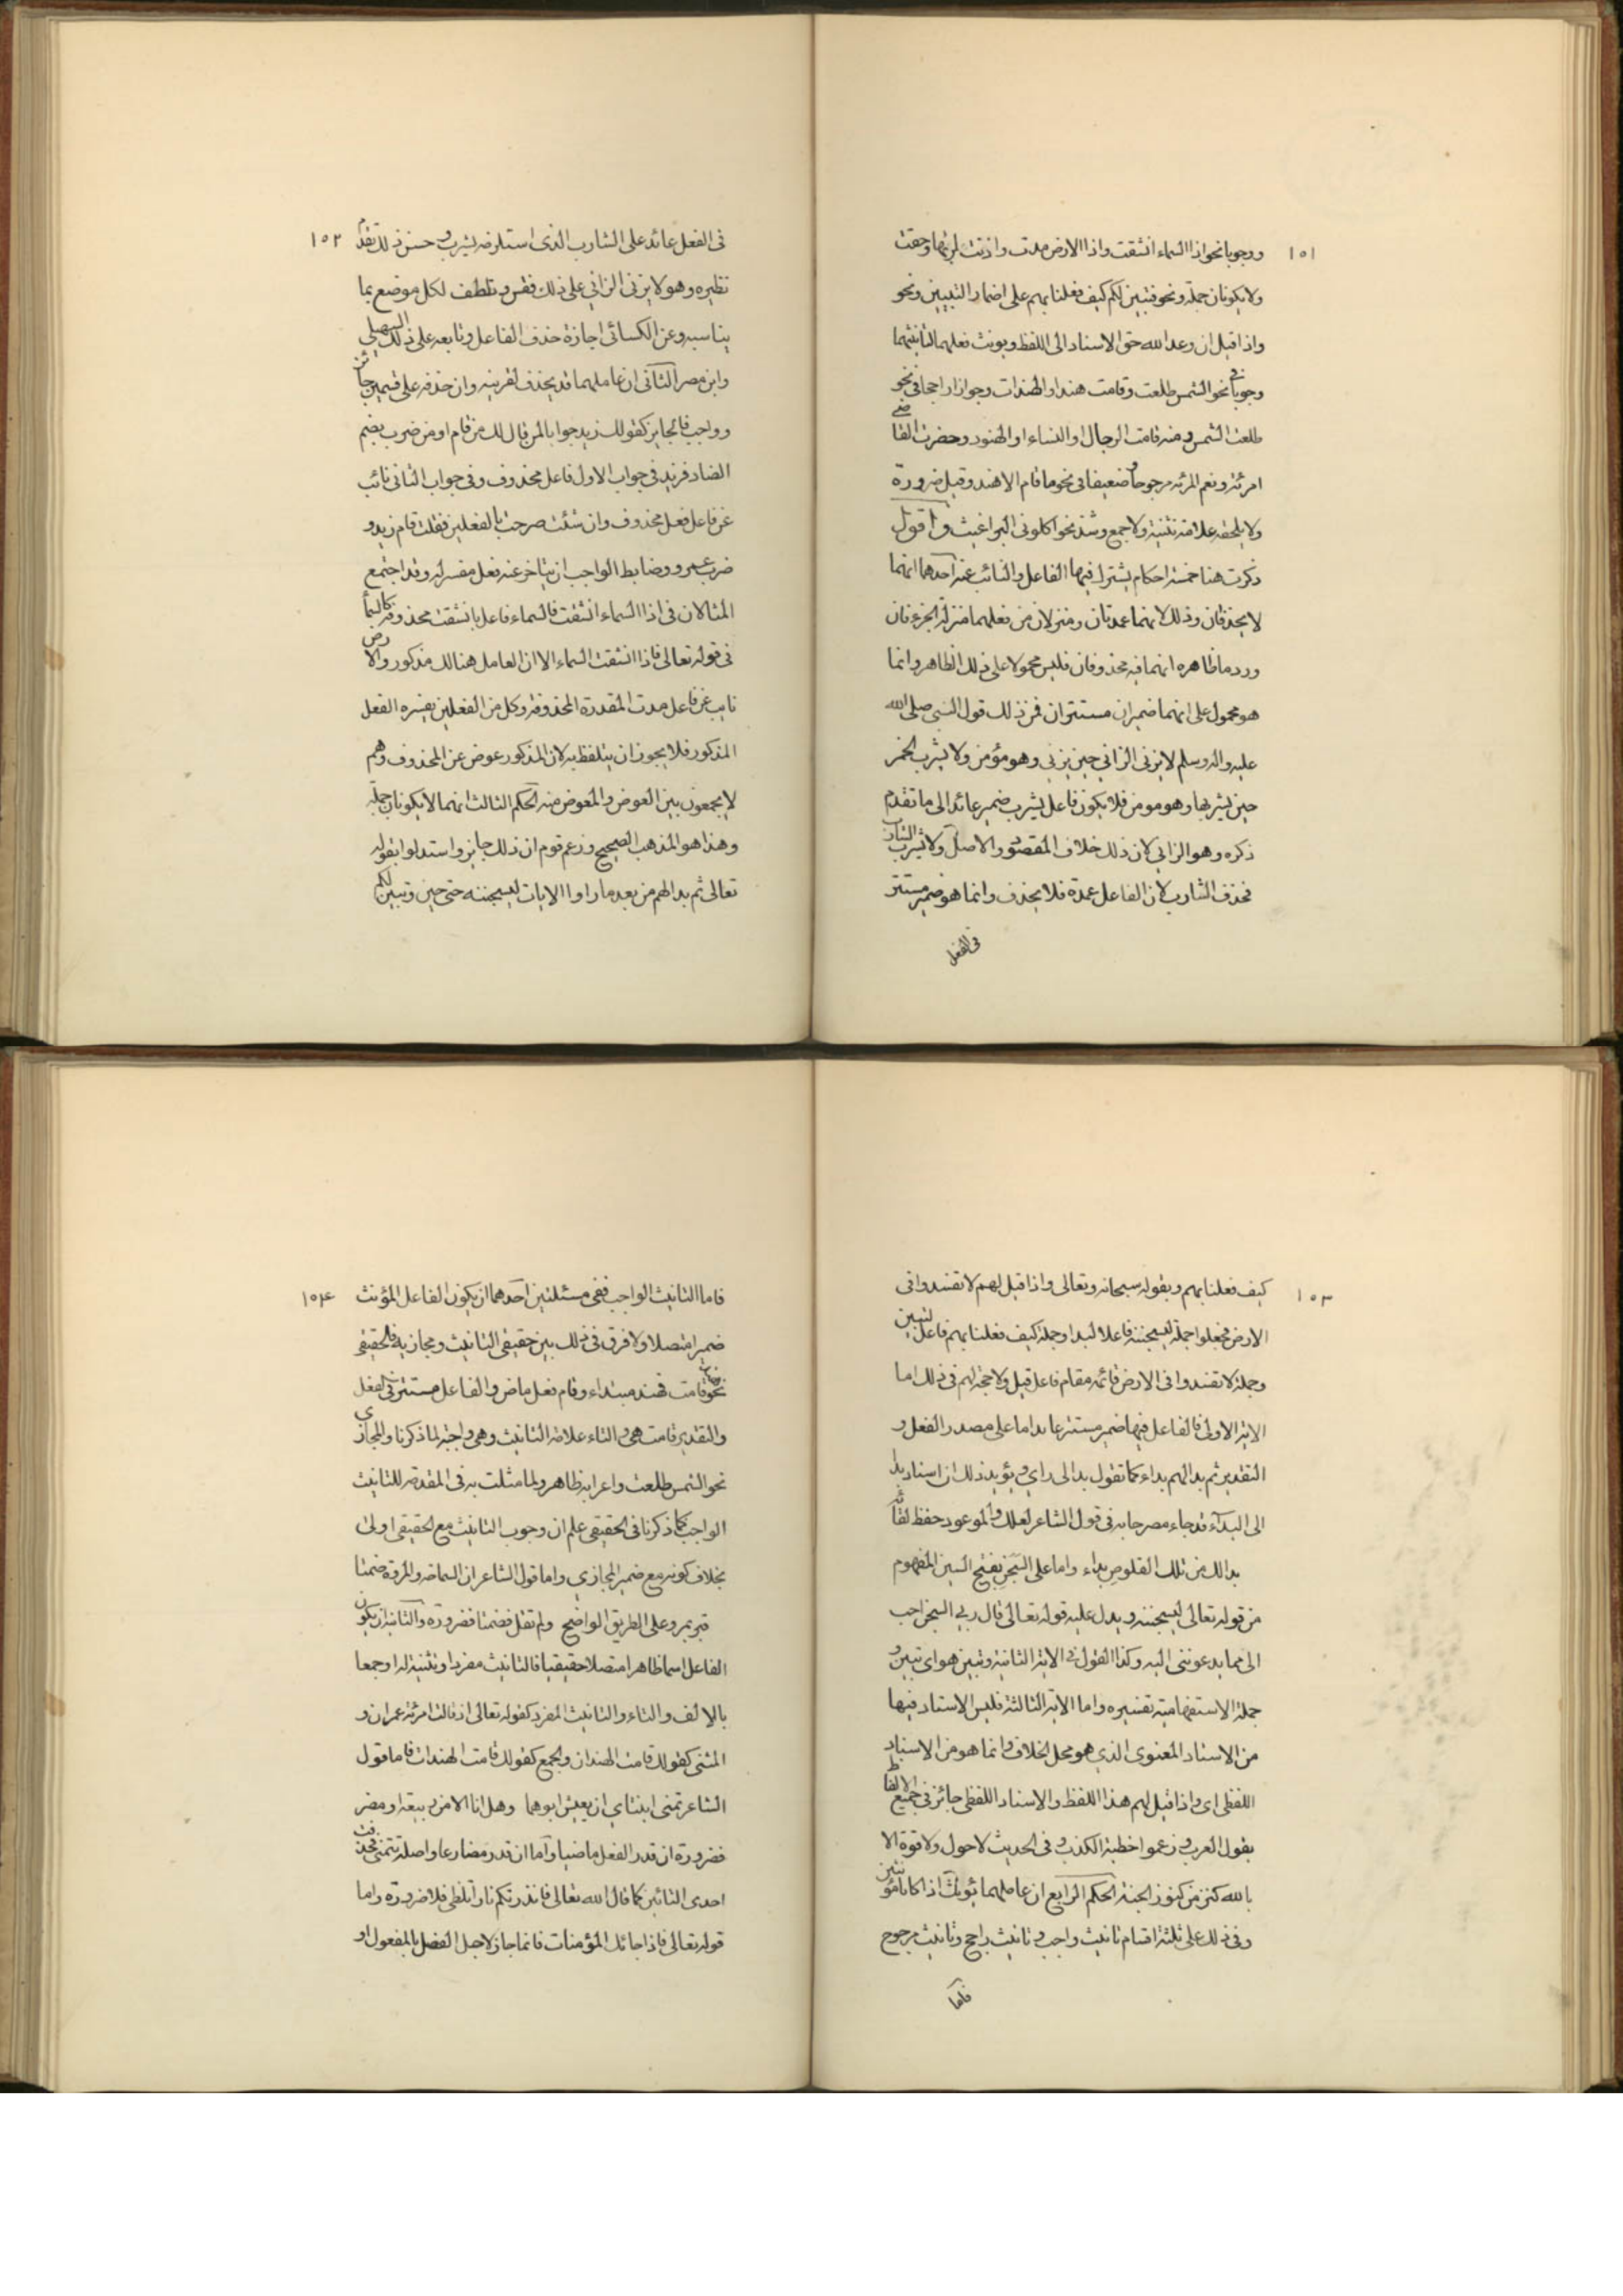 ١٥١
ووجوبا نحو اذا السماء انشقت واذا الارض مدت واذنت لربها وحقت
ولا يكونان جملة ونحو فتبين لكم كيف فعلنا بهم على اضمار التبيين ونحو
واذا قيل ان وعد الله حق الاسناد الى اللفظ ويونث فعلهما لتانيثهما
وجوبا في نحو الشمس طلعت وقامت هند او الهندات وجوازا راجحا في نحو
طلعت الشمس ومنه قامت الرجال او النساء او الهنود وحضرت القاضي
امرئة ونعم المرئة مرجوحا وضعيفا في نحو ما قام الا هند وقيل ضرورة
ولا يلحقه علامة تثنية ولا جمع وشذ نحو اكلوني البراغيث واقول
ذكرت هنا خمسة احكام يشترك فيها الفاعل والنائب عنه احدهما انهما
لا يحذفان وذلك لانهما عمدتان ومنزلان من فعلهما منزلة الجزء فان
ورد ما ظاهره انهما فيه محذوفان فليس محمولا على ذلك الظاهر وانما
هو محمول على انهما ضميران مستتران فمن ذلك قول النبي صلى الله
عليه واله وسلم لا يزني الزاني حين يزني وهو مؤمن ولا يشرب الخمر
حين يشربها وهو مومن فلا يكون فاعل يشرب ضمير عائد الى ما تقدم
ذكره وهو الزاني لان ذلك خلاف المقصود والاصل ولا يشرب الشارب
فحذف الشارب لان الفاعل عمدة فلا يحذف وانما هو ضمير مستتر
في الفعل
١٥٢
في الفعل عائد على الشارب الذي استلزمه يشرب وحسن ذلك تقدم
نظيره وهو لا يزني الزاني على ذلك فقس وتلطف لكل موضع بما
يناسبه وعن الكسائي اجازة حذف الفاعل وتابعه على ذلك السهيلي
وابن مصر الثاني ان عاملهما قد يحذف لقرينة وان حذفه على قسمين جائز
وواجب فالجايز كقولك زيد جوابا لمن قال لك من قام او من ضرب بضم
الضاد فزيد في جواب الاول فاعل محذوف وفي جواب الثاني نائب
عن فاعل فعل محذوف وان شئت صرحت بالفعلين فقلت قام زيد و
ضرب عمرو وضابط الواجب ان يتاخر عنه فعل مفسر له وقد اجتمع
المثالان في اذا السماء انشقت فالسماء فاعل بانشقت محذوفة كالسماء
في قوله تعالى فاذا انشقت السماء الا ان العامل هنالك مذكور والارض
نايب عن فاعل مدت المقدرة المحذوفة وكل من الفعلين يفسره الفعل
المذكور فلا يجوز ان يتلفظ به لان المذكور عوض عن المحذوف وهم
لا يجمعون بين العوض والمعوض منه الحكم الثالث انهما لا يكونان جملة
وهذا هو المذهب الصحيح وزعم قوم ان ذلك جايز واستدلوا بقوله
تعالى ثم بدا لهم من بعد ما راوا الايات ليسجننه حتى حين وتبين لكم
١٥٣
كيف فعلنا بهم وبقوله سبحانه وتعالى واذا قيل لهم لا تفسدوا في
الارض فجعلوا جملة ليسجننه فاعلا لبدا وجملة كيف فعلنا بهم فاعل لتبين
وجملة لا تفسدوا في الارض قائمة مقام فاعل قيل ولا حجة لهم في ذلك اما
الاية الاولى فالفاعل فيها ضمير مستتر عايد اما على مصدر الفعل و
التقدير ثم بدا لهم بداء كما تقول بدا لي راي ويؤيد ذلك ان اسناد بدا
الى البداء قد جاء مصرحا به في قول الشاعر لعلك والموعود حفظ لقائه
بدا لك من تلك القلوص بداء واما على السجن بفتح السين المفهوم
من قوله تعالى ليسجننه ويدل عليه قوله تعالى قال رب السجن احب
الي مما يدعونني اليه وكذا القول في الاية الثانية وتبين هو اي تبين و
جملة الاستفهامية تفسيره واما الاية الثالثة فليس الاسناد فيها
من الاسناد المعنوي الذي هو محل الخلاف وانما هو من الاسناد
اللفظي اي واذا قيل لهم هذا اللفظ والاسناد اللفظي جائز في جميع الالفاظ
بقول العرب زعموا خطية الكذب وفي الحديث لا حول ولا قوة الا
بالله كنز من كنوز الجنة الحكم الرابع ان عاملهما يؤنث اذا كانا مؤنثين
وفي ذلك على ثلثة اقسام تانيث واجب وتانيث راجح وتانيث مرجوح
فاما
١٥٤
فاما التانيث الواجب ففي مسئلتين احدهما ان يكون الفاعل المؤنث
ضميرا متصلا ولا فرق في ذلك بين حقيقي التانيث ومجازيه فالحقيقي
نحو هند قامت فهند مبتداء وقام فعل ماض والفاعل مستتر في الفعل
والتقدير قامت هي والتاء علامة التانيث وهي واجبة لما ذكرنا والمجازي
نحو الشمس طلعت واعرابه ظاهر ولما مثلت به في المقدمة للتانيث
الواجب كما ذكرنا في الحقيقي علم ان وجوب التانيث مع الحقيقي اولى
بخلاف كونه مع ضمير المجازي واما قول الشاعر ان السماحة والمروة ضمنا
قبر بمرو على الطريق الواضح ولم تقل فضمنا فضرورة والثانية ان يكون
الفاعل اسما ظاهرا متصلا حقيقيا فالتانيث مفردا وتثنية له او جمعا
بالالف والتاء والتانيث المفرد كقوله تعالى اذ قالت امرئة عمران و
المثنى كقولك قامت الهندان والجمع كقولك قامت الهندات فاما قول
الشاعر تمنى ابنتاي ان يعيش ابوهما وهل انا الا من ربيعة او مضر
فضرورة ان قدر الفعل ماضيا واما ان قدر مضارعا واصله تتمنى فحذفت
احدى التائين كما قال الله تعالى فانذرتكم نارا تلظى فلا ضرورة واما
قوله تعالى فاذا جائك المؤمنات فانما جاز لاجل الفصل بالمفعول او